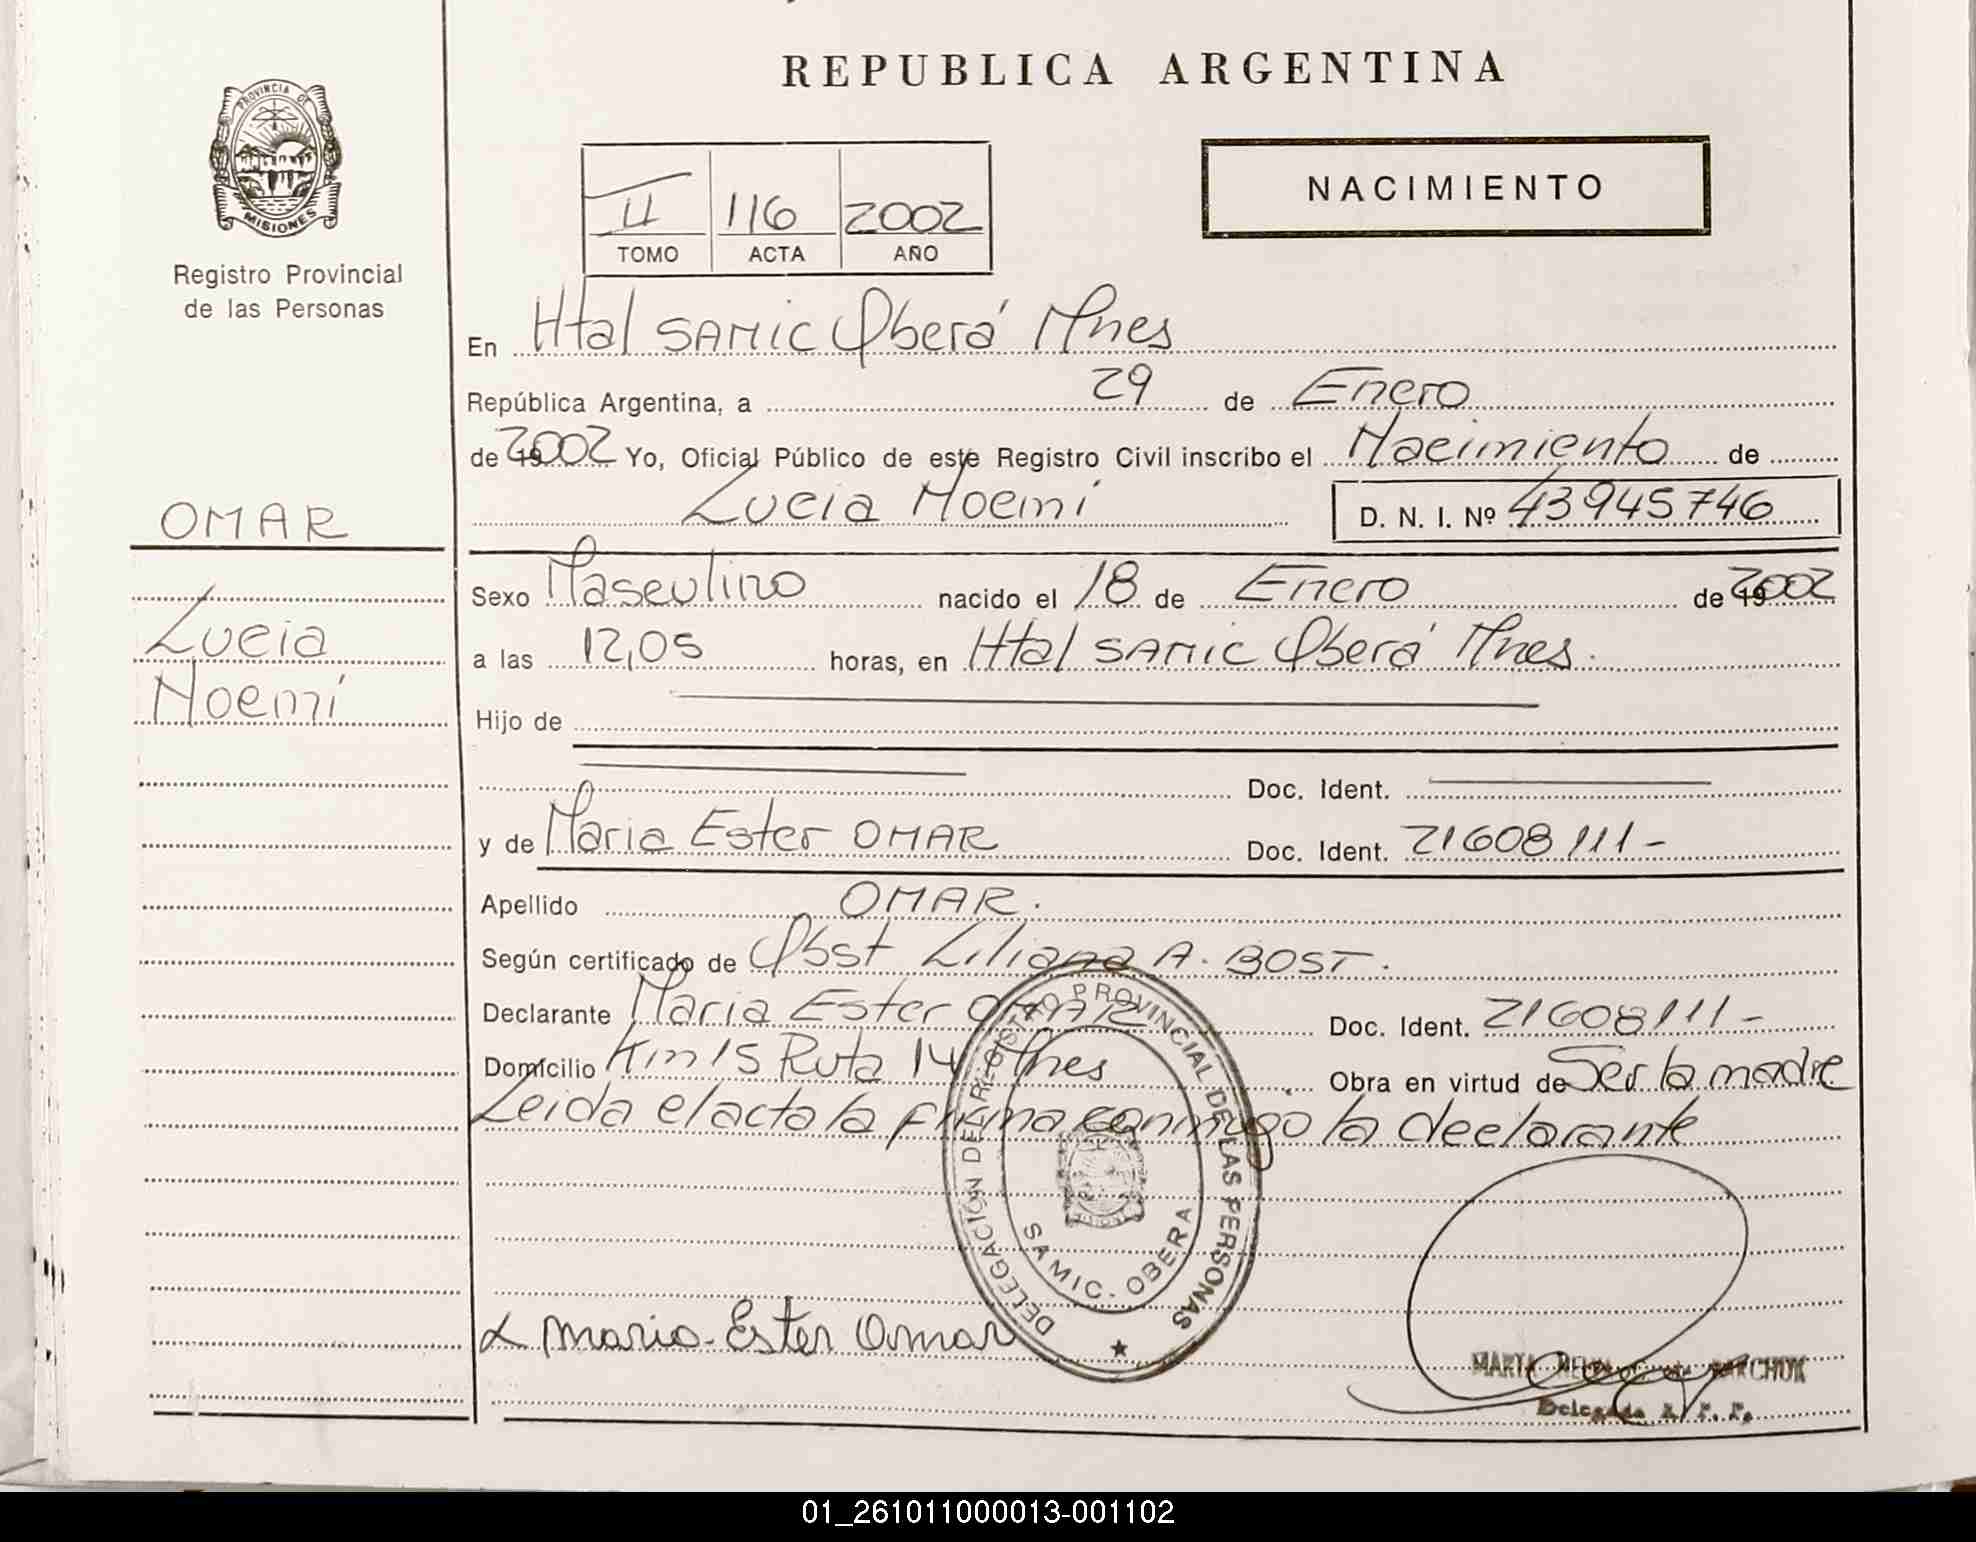 REPUBLICA ARGENTINA
PROVINCIA DE
MISIONES
Registro Provincial
de las Personas
II 116 2002
TOMO ACTA AÑO
NACIMIENTO
En Htal SAMIC Oberá Mnes
República Argentina, a 29 de Enero
de 2002 Yo, Oficial Público de este Registro Civil inscribo el Nacimiento de
Lucia Noemí D. N. I. Nº 43945746
OMAR
Lucia
Noemí
Sexo Masculino nacido el 18 de Enero de 2002
a las 12,05 horas, en Htal SAMIC Oberá Mnes.
Hijo de
Doc. Ident.
y de Maria Ester OMAR Doc. Ident. 21608111-
Apellido OMAR.
Según certificado de Obst Liliana A. BOST.
Declarante Maria Ester OMAR Doc. Ident. 21608111-
Domicilio Km 15 Ruta 14 Mnes Obra en virtud de Ser la madre
Leida el acta la firma conmigo la declarante
DELEGACIÓN DEL REGISTRO PROVINCIAL DE LAS PERSONAS
SAMIC. OBERA
Maria Ester Omar
MARTA
Delegada R. P. P.
01_261011000013-001102